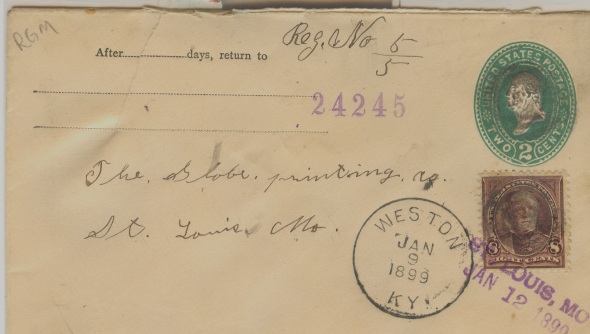 RGM
After days, return to
Reg. No 5
5
24245
UNITED STATES POSTAGE
TWO 2 CENTS
The. Globe. printing. co.
St. Louis. Mo.
WESTON
JAN
9
1899
KY.
8 8
ST. LOUIS, MO
JAN 12 1899